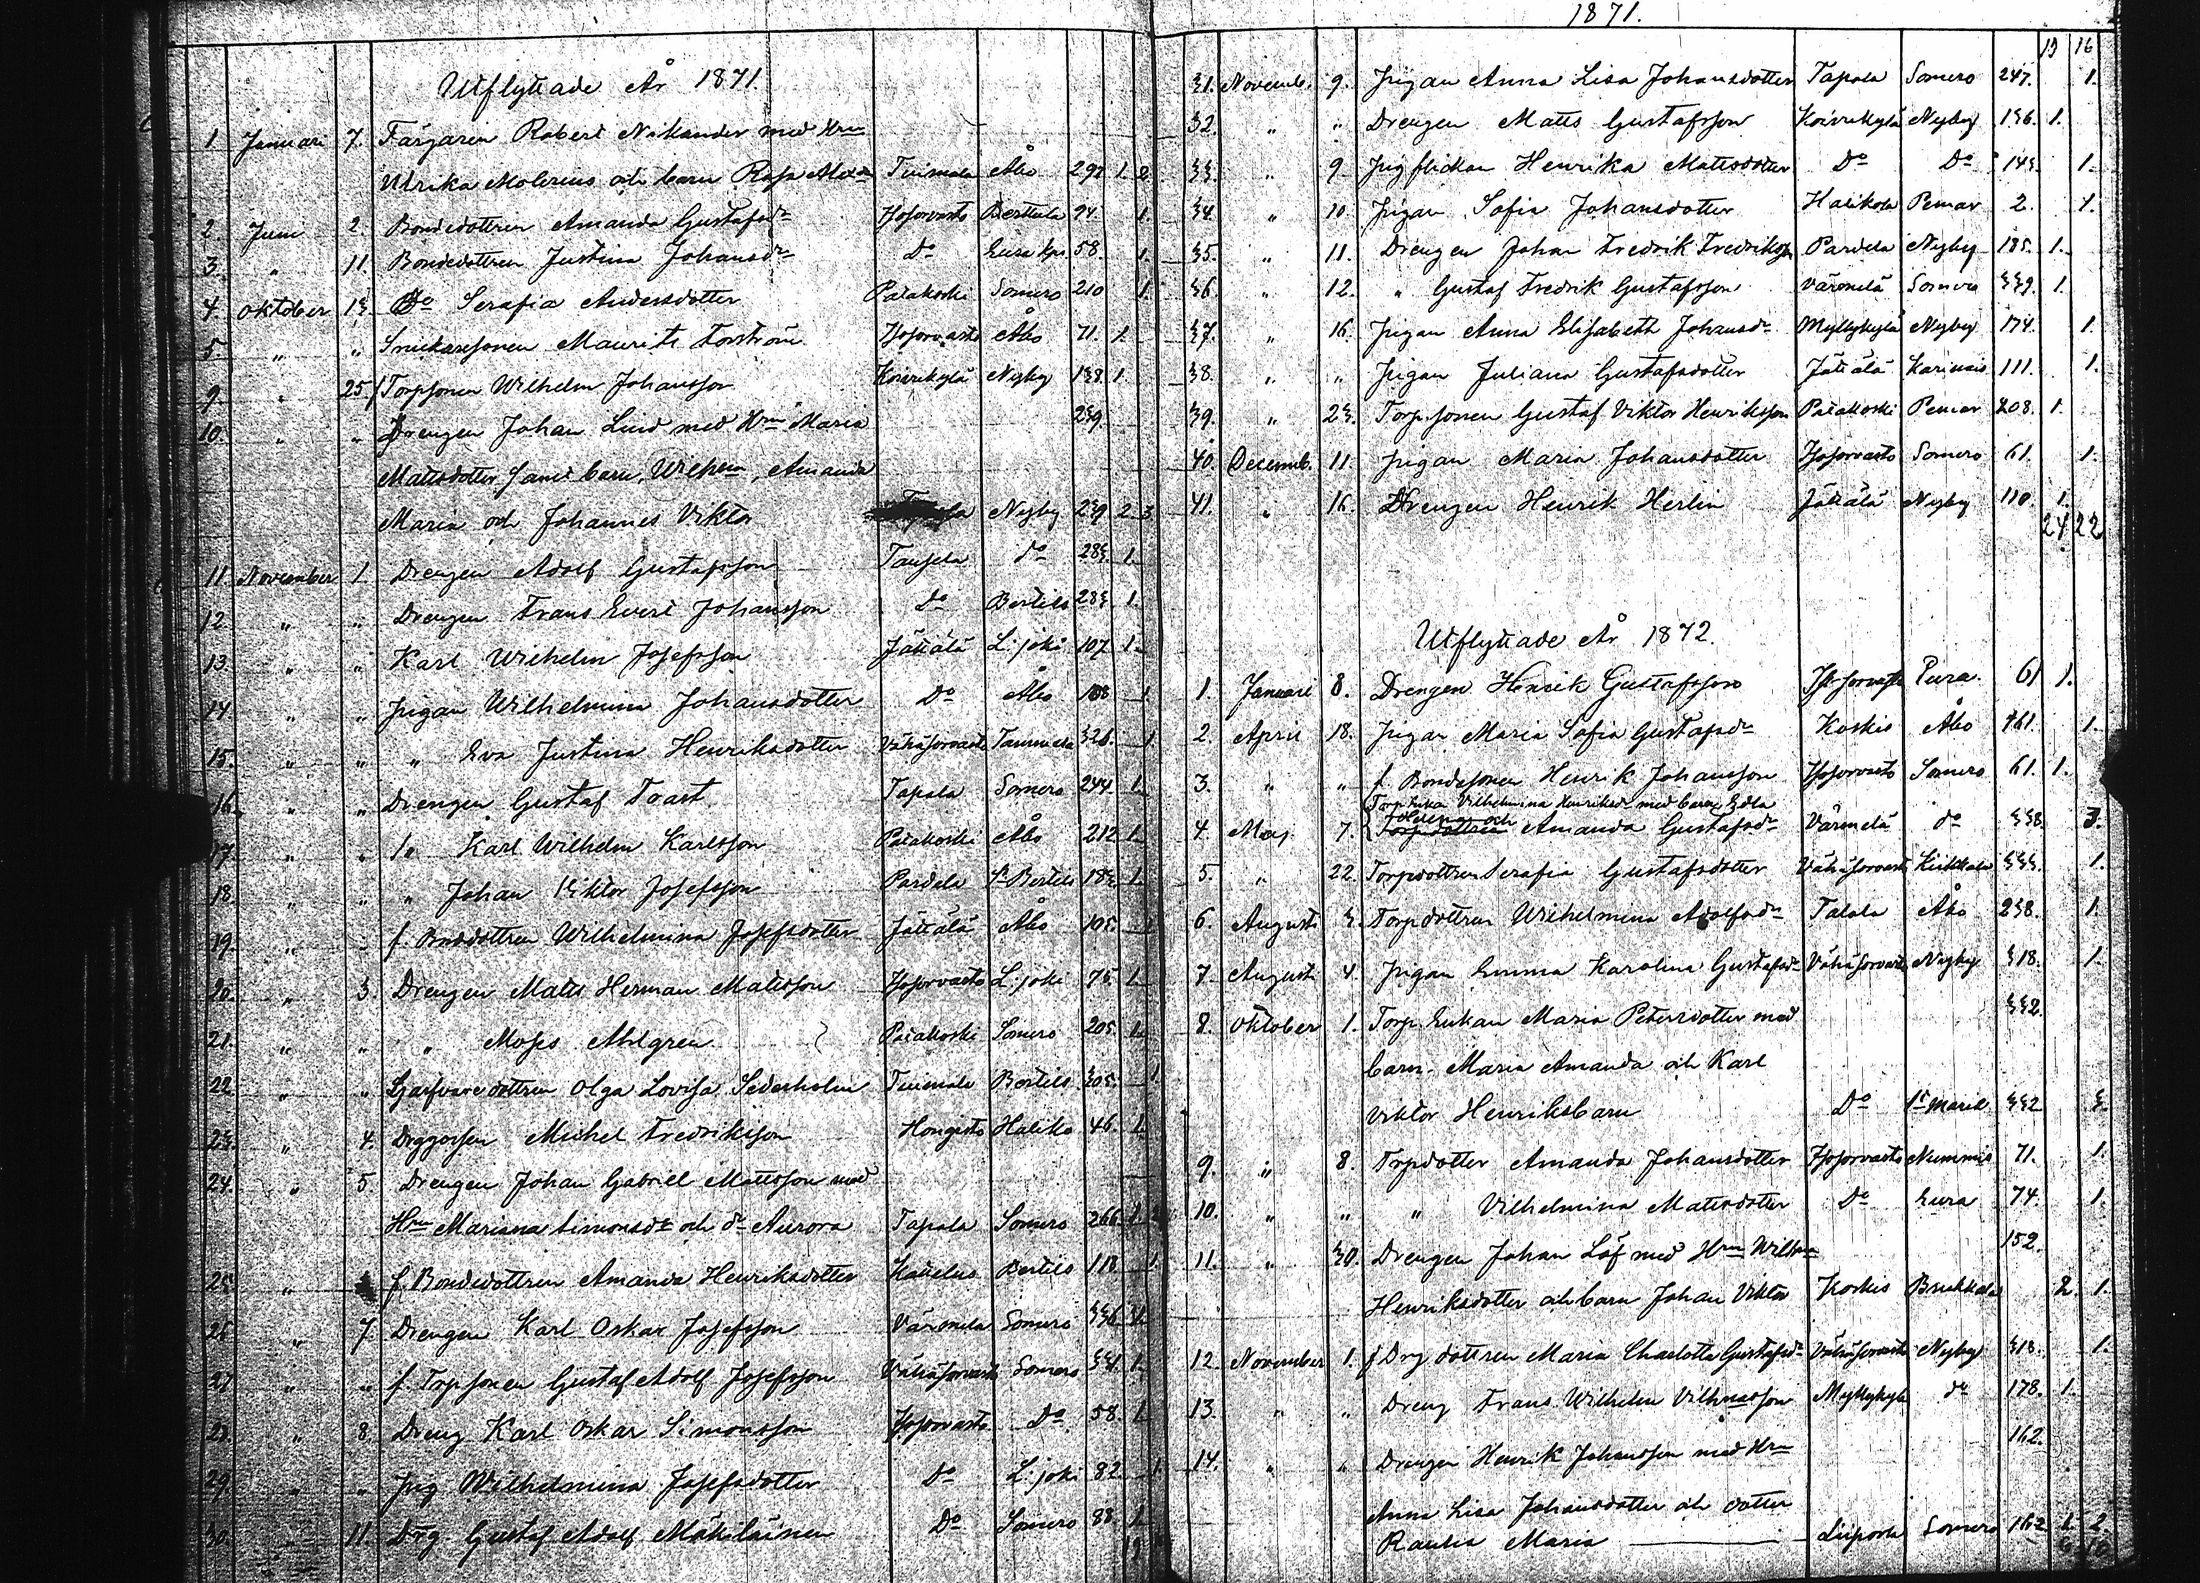 1871.
Utflyttade År 1871.
1 Januari 7. Färgaren Robert Nikander med Hru
Ulrika Molerius och barn Tuimala Åbo 297 1. 2.
2. Juni 2. Bondedottren Amanda Gustafsdr Hoforvasto Berttula 94. 1.
3. " 11. Bondedottren Justina Johansdr Do Eura kps 58. 1.
4. Oktober 13. Do Serafia Andersdotter Patakoski Somero 210 1.
5 " " Snickaresonen Maurits Forström Hoforvasto Åbo 71. 1.
9. " 25. Torpsonen Wilhelm Johansson Koivikylä Nyby 138. 1.
10. " " Drengen Johan Lind med Hru Maria 239.
Mattsdotter, samt barn, Wilhm, Amanda
Maria och Johannes Viktor Nyby 239 2. 3.
11. November 1. Drengen Adolf Gustafsson Taupela do 283. 1.
12. " " Drengen Frans Evert Johansson Do Bertils 283. 1.
13. " " Karl Wilhelm Josefsson Jättälä L:joki 107 1.
14. " " Pigan Wilhelmina Johansdotter Do Åbo 108 1
15. " " " Eva Justina Henriksdotter Vähäsorvasto Tammela 326. 1
16. " " Drengen Gustaf Toast Tapala Somero 244. 1.
17. " " " Karl Wilhelm Karlsson Patakoski Åbo 212 1.
18. " " " Johan Viktor Josefsson Pardela St Bertils 183 1.
19. " " f. Bndedottren Wilhelmina Josefsdotter Jättälä Åbo 105. 1
20. " 3. Drengen Matts Herman Mattsson Hoforvasto L:joki 75. 1.
21. " " " Moses Ahlgren Patakoski Somero 205. 1.
22 " " dottren Olga Lovisa Sederholm Tuimala Bertils 305. 1.
23. " 4. Michel Fredriksson Hongisto Haliko 46. 1.
24. " 5. Drengen Johan Gabriel Mattsson med
Hru Mariana Simonsdr och dr Aurora Tapala Somero 266. 1. 2
25. " f. Bondedottren Amanda Henriksdotter Kattelus Bertils 118 1.
26 " 7. Drengen Karl Oskar Josefsson Väromela Somero 336 1.
27 " " f. Torpsonen Gustaf Adolf Josefsson Vähäsorvasto Somero 331. 1.
28. " 8. Dreng Karl Oskar Simonsson Hoforvasto Do 58. 1.
29. " " Pig Wilhelmina Josefsdotter Do L:joki 82. 1.
30. " 11. Drg Gustaf Adolf Mäkiläinen Do Somero 88. 1.
19 16
31. Novemb. 9. Pigan Anna Lisa Johansdotter Tapala Somero 247. 1.
32. " " Drengen Matts Gustafsson Koivikylä Nyby 136. 1.
33. " 9. Pigflickan Henrika Mattsdotter Do Do 143. 1.
34. " 10. Pigan Sofia Johansdotter Halikola Pemar 2. 1.
35. " 11. Drengen Johan Fredrik Fredriksson Pardela Nyby 185. 1.
36 " 12. " Gustaf Fredrik Gustafsson Väromelä Somero 339. 1.
37. " 16. Pigan Anna Elisabeth Johansdr Myllykylä Nyby 174. 1.
38. " " Pigan Juliana Gustafsdotter Jättälä Karinais 111. 1.
39. " 23. Torpsonen Gustaf Viktor Henriksson Patakoski Pemar 208. 1.
40. Decemb. 11. Pigan Maria Johansdotter Hoforvasto Somero 61. 1.
41. " 16. Drengen Henrik Herlin Jättälä Nyby 110. 1.
24 22
Utflyttade År 1872.
1. Januari 8. Drengen Henrik Gustafsson Pura. 61 1.
2. April 18. Pigan Maria Sofia Gustafsdr Koskis Åbo 161. 1.
3. " " f. Bondesonen Henrik Johansson Hoforvasto Somero 61. 1.
Torp Enkan Vilhelmina Henriksdr med barn Edla
4. Maj 7. Helena och Torpdottren Amanda Gustafsdr Väromelä do 338. 3.
5. " 22. Torpdottren Serafia Gustafsdotter Vähäsorvasto Kiikkala 333. 1.
6. Augusti 3. Torpdottren Wilhelmina Adolfsdr Talala Åbo 238. 1.
7. Augusti 4. Pigan Emma Karolina Gustafsdr Vähäsorvasto Nyby 318. 1.
8. Oktober 1. Torp. Enkan Maria Petersdotter med 332.
barn. Maria Amanda och Karl
Viktor Henriksbarn Do St Marie 332 3.
9. " 8. Trpdotter Amanda Johansdotter Hoforvasto Nummis 71. 1.
10. " " " Vilhelmina Mattsdotter Do Eura 74. 1.
11. " 30. Drengen Johan Löf med Hru Wilhma 152.
Henriksdotter och barn Johan Viktor Koskis 2. 1.
12. November 1. f Drg dottren Maria Charlotta Gustafsdr Vähäsorvasto Nyby 318. 1.
13. " " Dreng Frans Wilhelm Vilhmsson Myllykylä do 178. 1.
14. " " Drengen Henrik Johansson med Hru 162.
Anna Lisa Johansdotter och dotter
Maria Liipola Somero 162 1. 2.